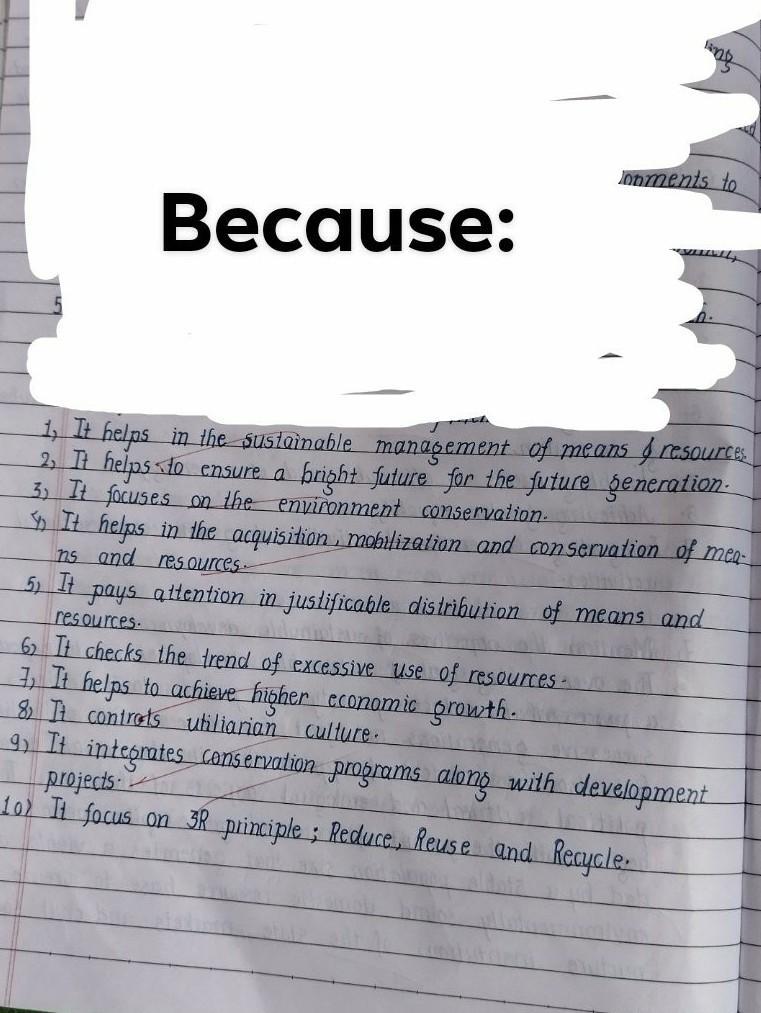 ing
lopments to
Because:
5
1) It helps in the sustainable management of means & resources.
2) It helps to ensure a bright future for the future generation.
3) It focuses on the environment conservation.
4) It helps in the acquisition, mobilization and conservation of mea-
ns and resources.
5) It pays attention in justificable distribution of means and
resources.
6) It checks the trend of excessive use of resources.
7) It helps to achieve higher economic growth.
8) It controls utiliarian culture.
9) It integrates conservation programs along with development
projects.
10) It focus on 3R principle ; Reduce, Reuse and Recycle.